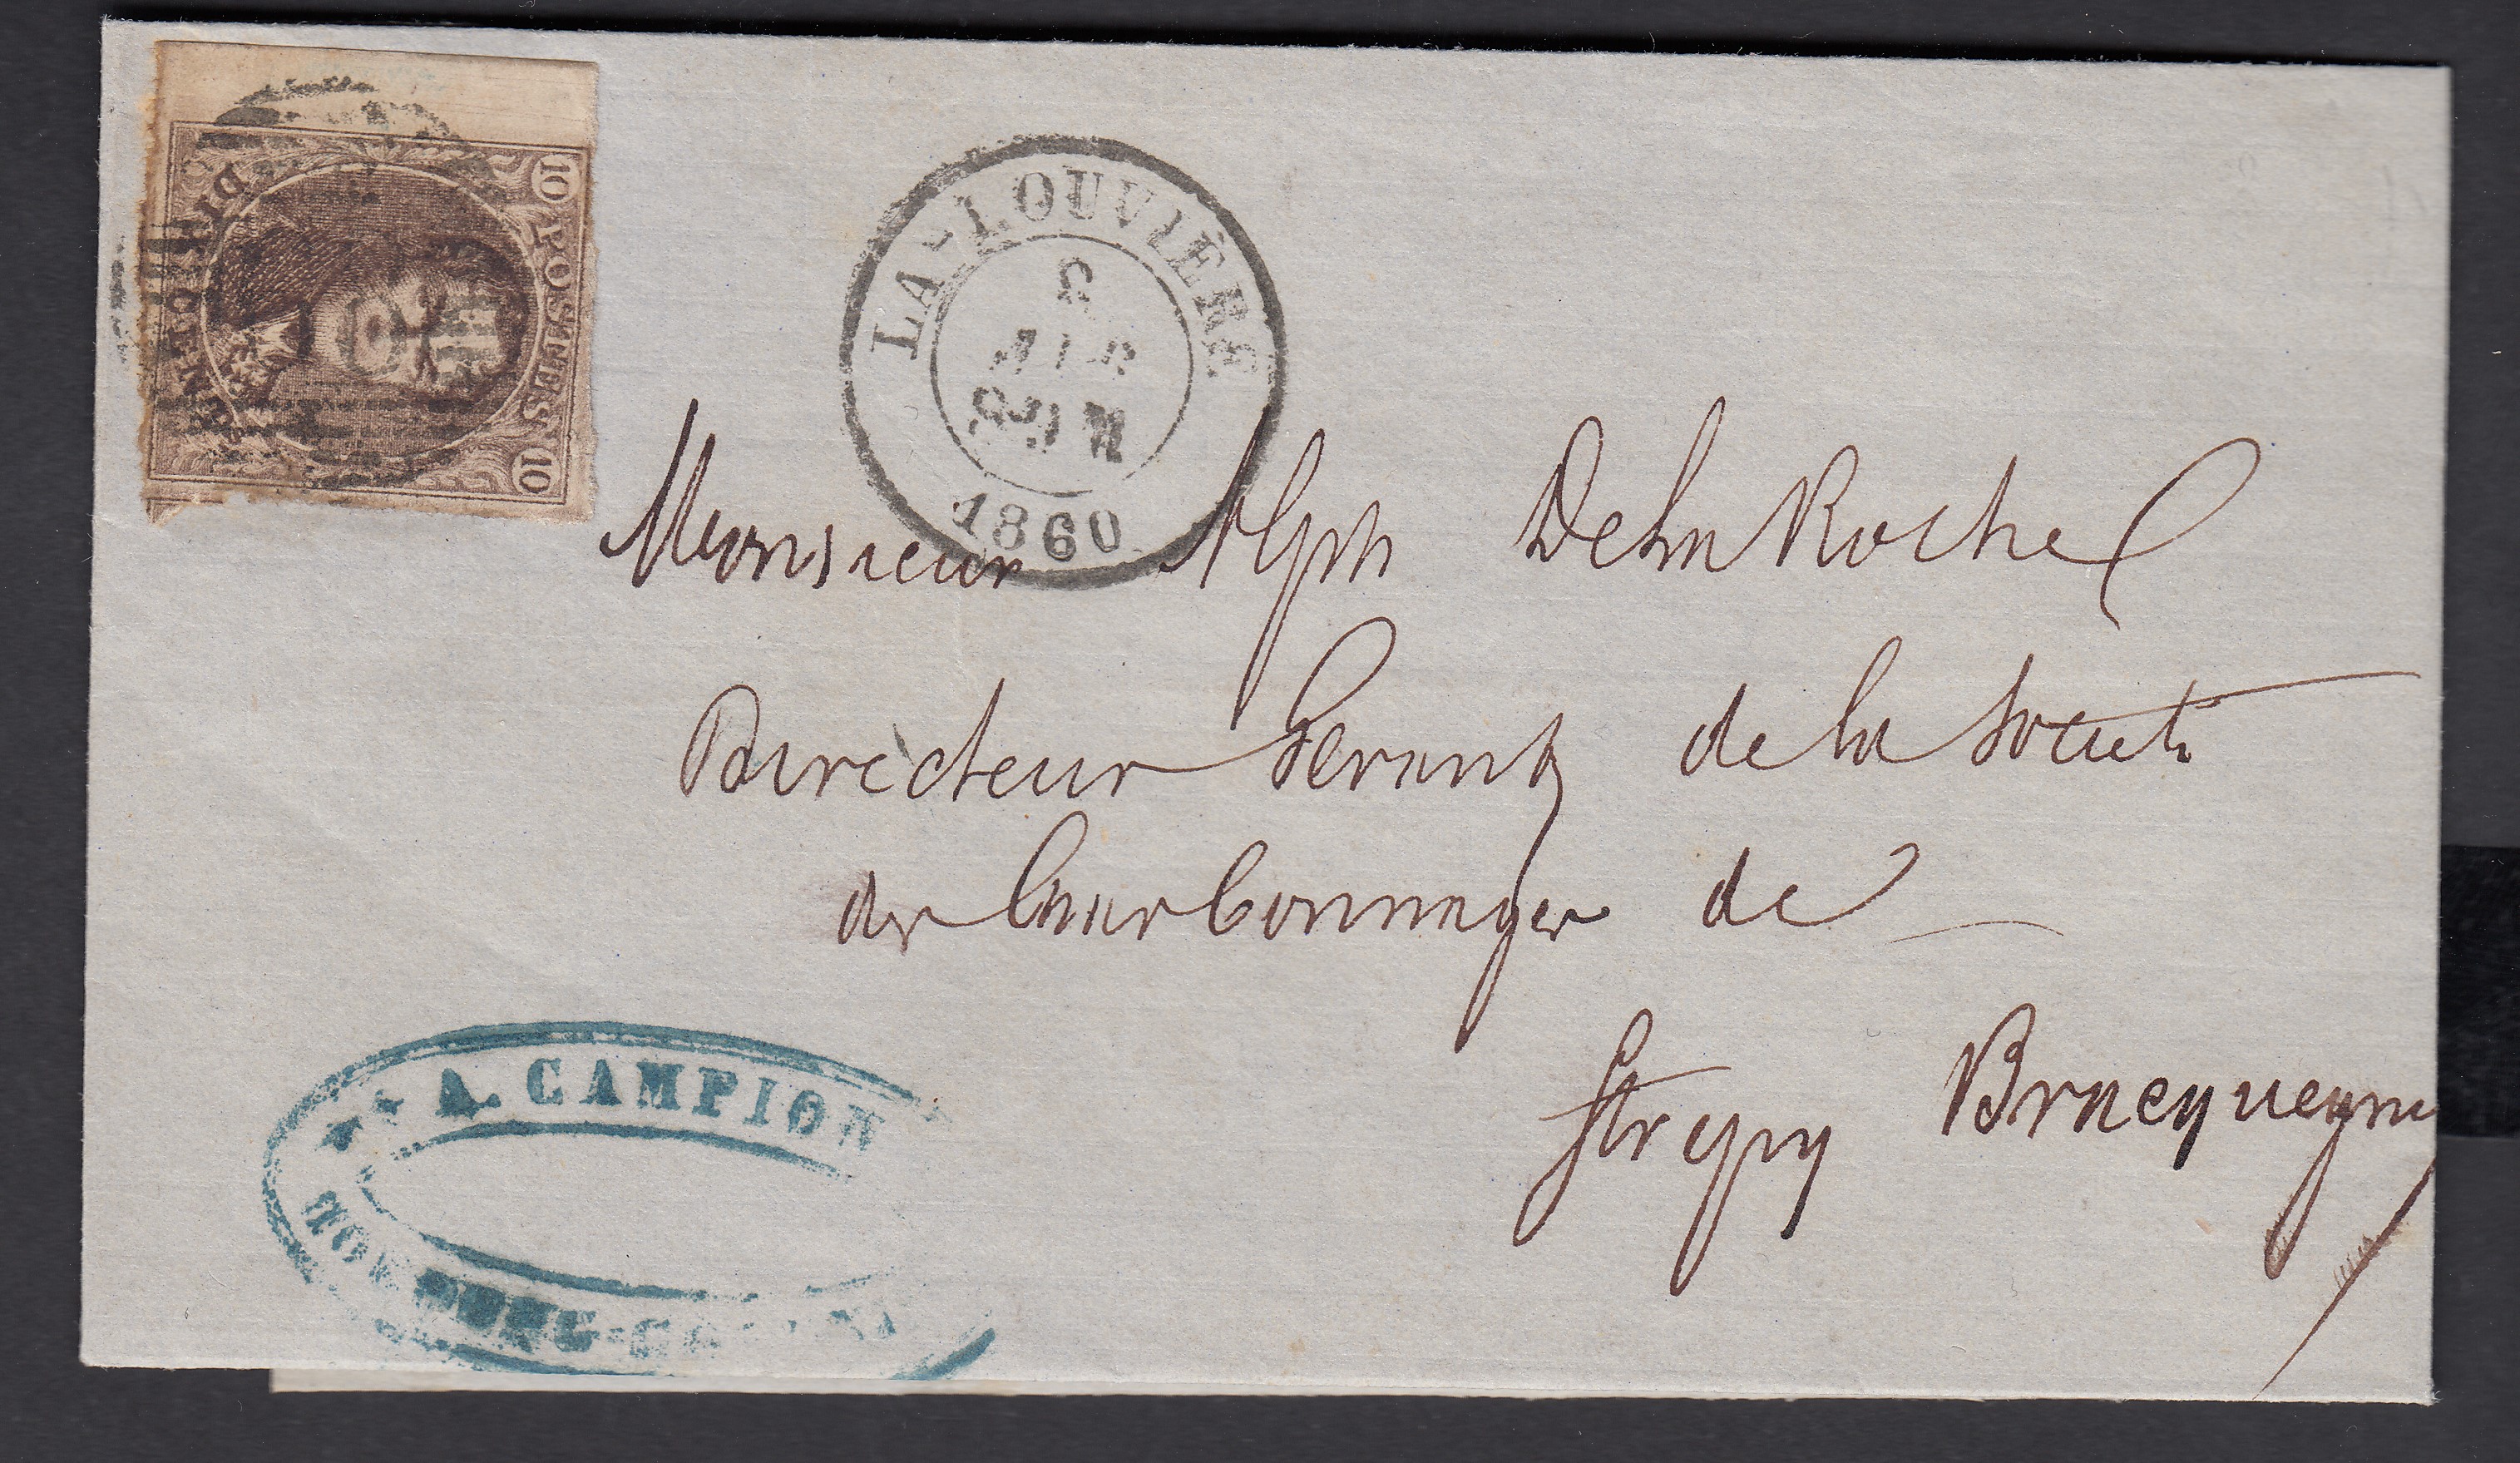 10 POSTES 10
DIX CENTS
LA-LOUVIÈRE
1860
Monsieur Alph DelaRoche
Directeur Gerant de la Societé
des Charbonnages de
Strepy Bracquegnie
A. CAMPION